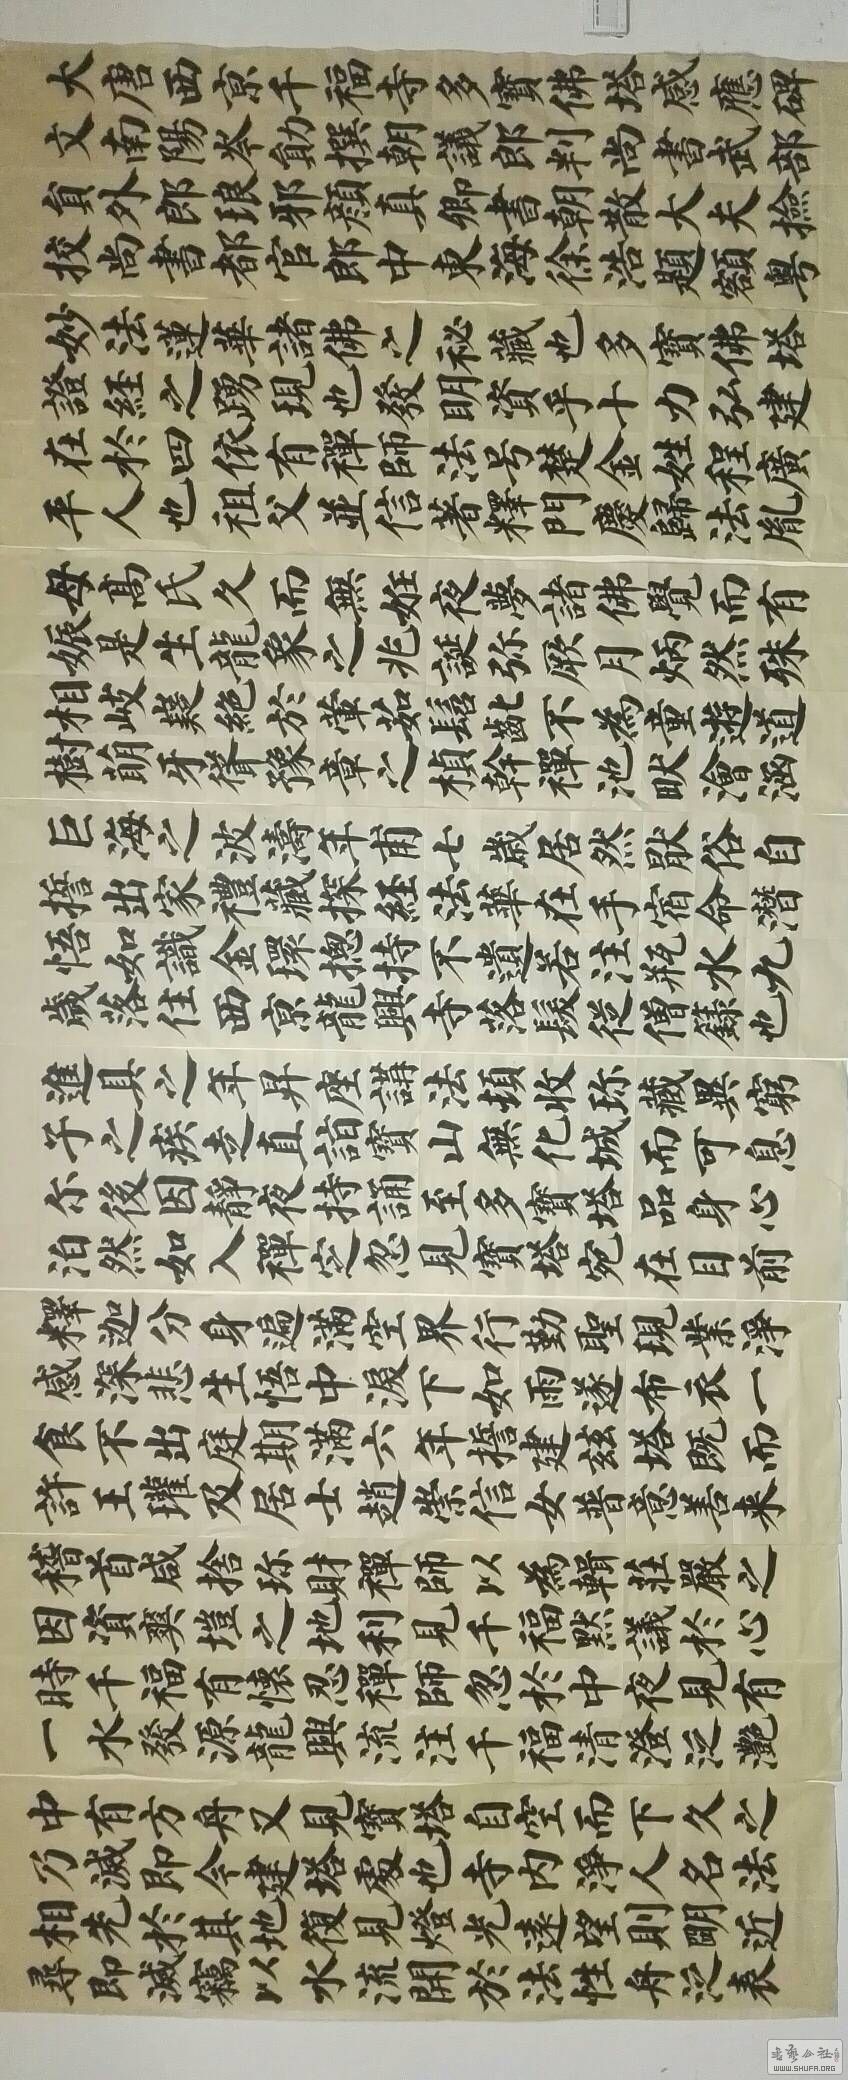 大唐西京千福寺多寶佛塔感應碑
文南陽岑勛撰朝議郎判尚書武部
員外郎琅邪顏真卿書朝散大夫撿
挍尚書都官郎中東海徐浩題額粤
妙法蓮華諸佛之秘藏也多寶佛塔
證經之踴現也發明資乎十力弘建
在於四依有禪師法号楚金姓程廣
平人也祖父並信著釋門慶歸法胤
母高氏久而無姙夜夢諸佛覺而有
娠是生龍象之兆誕弥厥月炳然殊
相岐嶷絕於葷茹髫齔不為童遊道
樹萌牙聳豫章之楨幹禪池畎澮涵
巨海之波濤年甫七歲居然猒俗自
誓出家禮藏探経法華在手宿命潛
悟如識金環揔持不遺若注瓶水九
歲落住西京龍興寺落髮從僧籙也
進具之年昇座講法頓收珍藏異窮
子之疾走直詣寶山無化城而可息
尔後因靜夜持誦至多寶塔品身心
泊然如入禪定忽見寶塔宛在目前
釋迦分身遍滿空界行勤聖現業淨
感深悲生悟中淚下如雨遂布衣一
食不出庭期滿六年誓建茲塔既而
許王瓘及居士趙崇信女普意善来
稽首咸捨珍財禪師以為輯莊嚴之
因資爽塏之地利見千福默議於心
時千福有懷忍禪師忽於中夜見有
一水發源龍興流注千福清澄泛灧
中有方舟又見寶塔自空而下久之
乃滅即今建塔處也寺內淨人名法
相先於其地復見燈光遠望則明近
尋即滅竊以水流開於法性舟泛表
書藝公社
WWW.SHUFA.ORG